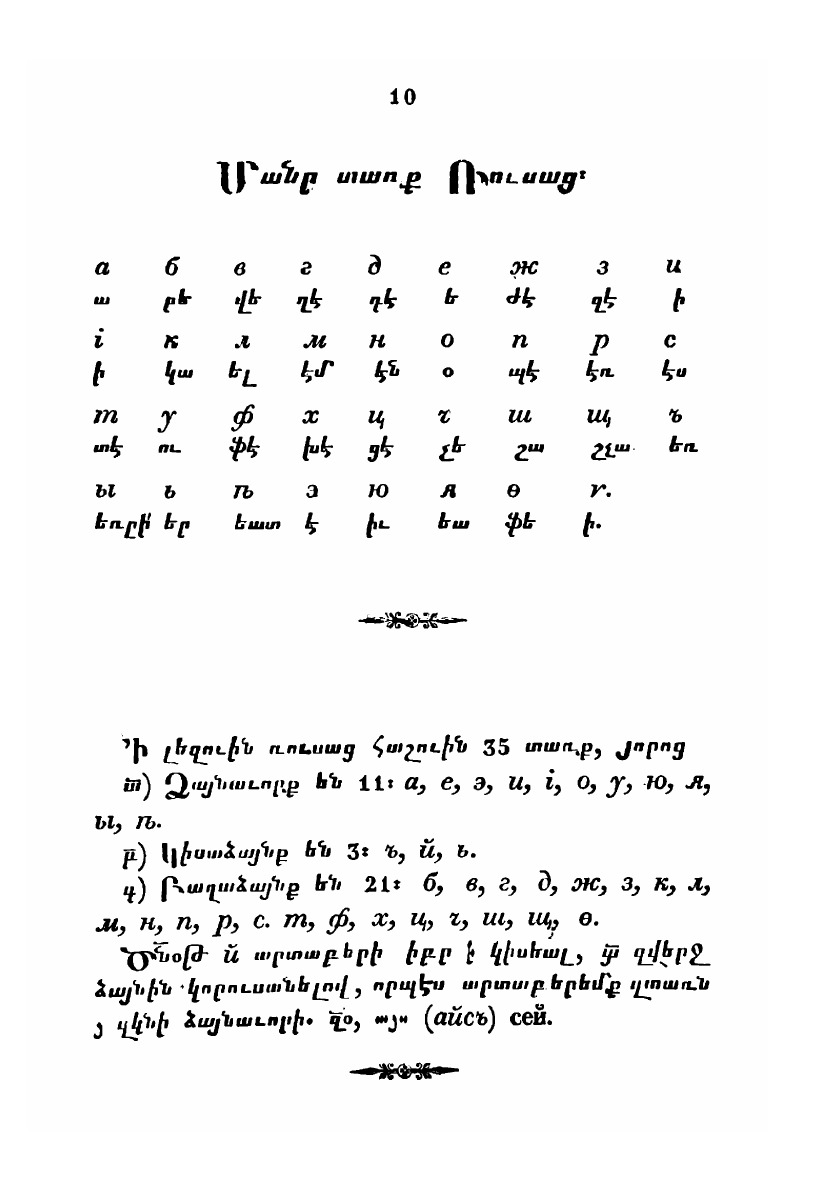 10
Մանր տառք Ռուսաց։
а б в г д е ж з и
ա բե վե ղէ դէ ե ժէ զէ ի
і к л м н о п р с
ի կա ել էմ էն օ պէ էռ էս
т у ф х ц ч ш щ ъ
տէ ու ֆէ խէ ցէ չե շա շչա եռ
ы ь ѣ э ю я ѳ ѵ.
եռըի եր եատ է իւ եա ֆե ի.
՚Ի լեզուին ռուսաց հաշուին 35 տառք, յորոց
ա̅) Ձայնաւորք են 11։ а, е, э, и, і, о, у, ю, я,
ы, ѣ.
բ̅) կիսաձայնք են 3։ ъ, й, ь.
գ̅) Բաղաձայնք են 21։ б, в, г, д, ж, з, к, л,
м, н, п, р, с. т, ф, х, ц, ч, ш, щ, ѳ.
Ծնօթ й արտաբերի իբր ի կիսեալ,  զվերջ
ձայնին կորուսանելով, որպէս արտաբերեմք զտառն
յ զկնի ձայնաւորի. զօ, այս (айсъ) сей.